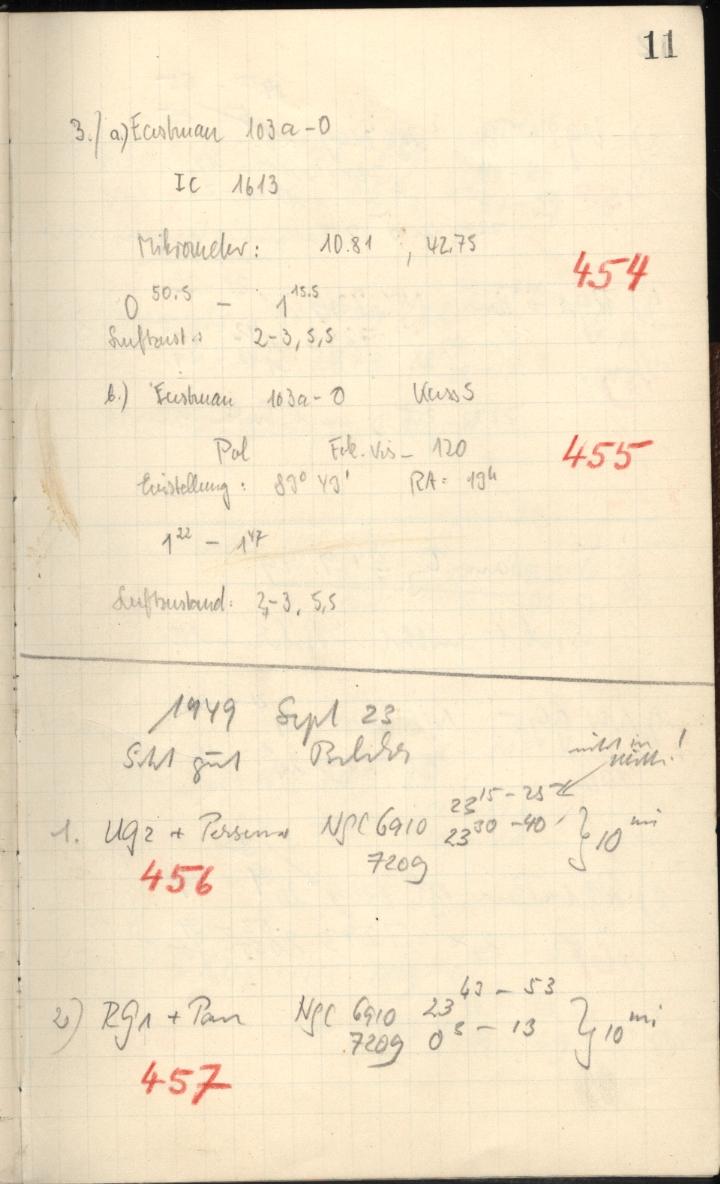 11
3.) a.) Eastman 103a-O
IC 1613
Mikrometer: 10.81 , 42.75
454
0 50.5 – 1 15.5
Luftzust.: 2-3, 5,5
b.) Eastman 103a-O
Pol 120
455
Einstellung: 83° 43' RA: 19h
1 22 – 1 47
Luftzustand: 2-3, 5,5
1949 Sept 23
Sicht gut Bilder
nicht in
23 15 – 25
1. UG2 + NGC 6910 23 30 – 40 } 10 mi
7209
456
43 – 53
2) RG1 + Pan NGC 6910 23 } 10 mi
7209 0 3 – 13
457